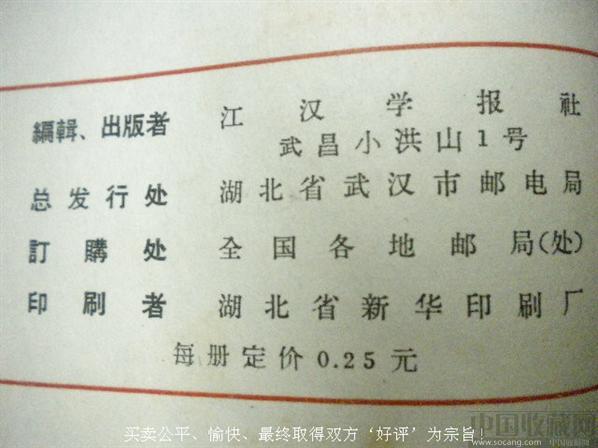 編輯、出版者 江汉学报社
武昌小洪山1号
总发行处 湖北省武汉市邮电局
訂購处 全国各地邮局(处)
印刷者 湖北省新华印刷厂
每册定价0.25元
买卖公平、愉快、最终取得双方‘好评’为宗旨!
中国收藏网
www.socang.com 中国收藏网